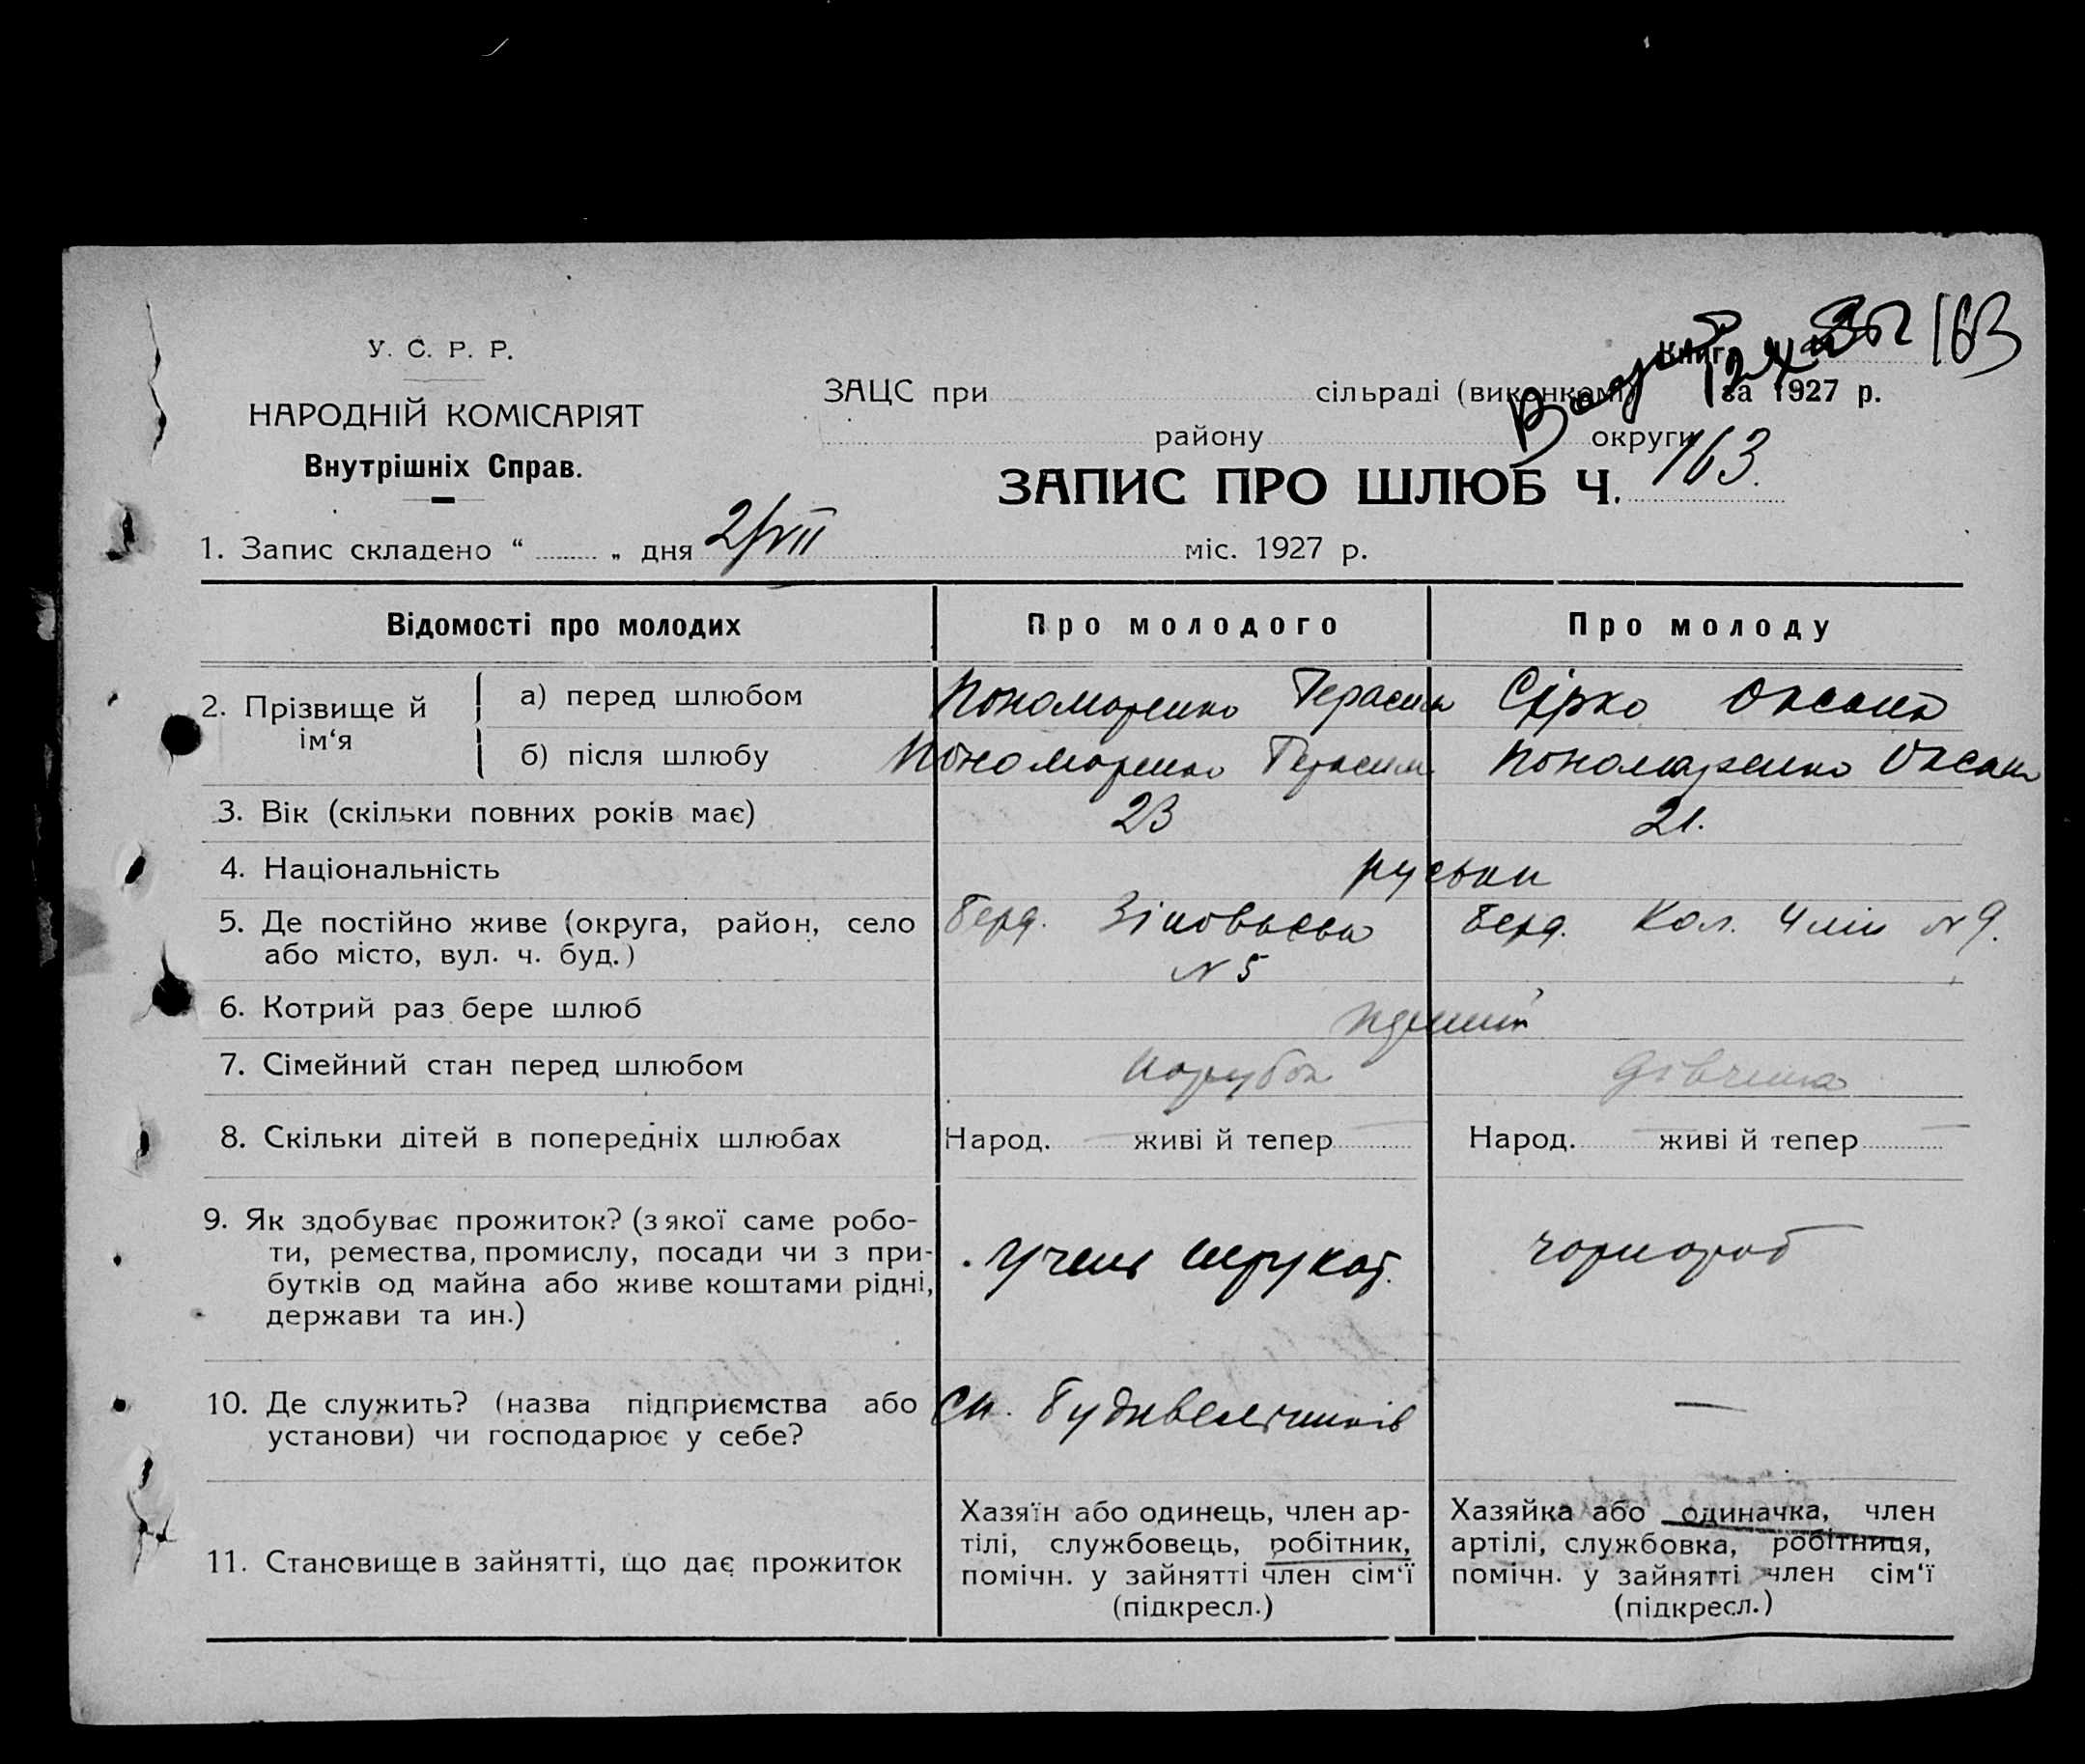 163
У. С. Р. Р.
НАРОДНІЙ КОМІСАРІЯТ
Внутрішніх Справ.
Книг
ЗАЦС при сільраді (виконкомі за 1927 р.
району округи
ЗАПИС ПРО ШЛЮБ Ч. 163.
1. Запис складено “ „ дня 2/VII міс. 1927 р.
Відомості про молодих Про молодого Про молоду
2. Прізвище й ім‘я
а) перед шлюбом Пономаренко Герасим Сірко Оксана
б) після шлюбу Пономаренко Герасим Пономаренко Оксана
3. Вік (скільки повних років має) 23 21.
4. Національність руськи
5. Де постійно живе (округа, район, село Берд. Зіновьєва Берд. Кол. 4 лін N 9.
або місто, вул. ч. буд.) N 5
6. Котрий раз бере шлюб
7. Сімейний стан перед шлюбом парубок дівчина
8. Скільки дітей в попередніх шлюбах Народ. — живі й тепер — Народ. — живі й тепер —
9. Як здобуває прожиток? (з якої саме робо-
ти, ремества, промислу, посади чи з при-
бутків од майна або живе коштами рідні,
держави та ин.)
учень штукат. чорнороб
10. Де служить? (назва підприємства або
установи) чи господарює у себе?
Сп. Будивельників —
11. Становище в зайнятті, що дає прожиток
Хазяїн або одинець, член ар-
тілі, службовець, робітник,
помічн. у зайнятті член сім‘ї
(підкресл.)
Хазяйка або одиначка, член
артілі, службовка, робітниця,
помічн. у зайнятті член сім‘ї
(підкресл.)